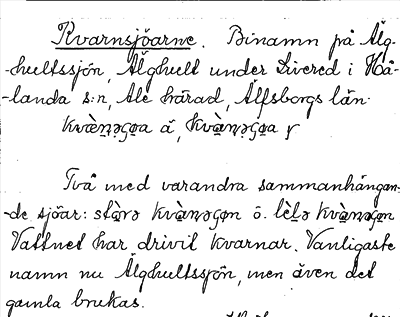 Kvarnsjöarne. Binamn på Älg-
-hultssjön, Älghult under Livered i Hå-
-landa s:n, Ale härad, Älfsborgs län.
Två med varandra sammanhängan-
-de sjöar: ö.
Vattnet har drivit kvarnar. Vanligaste
namn nu Älghultssjön, men även det
gamla brukas.